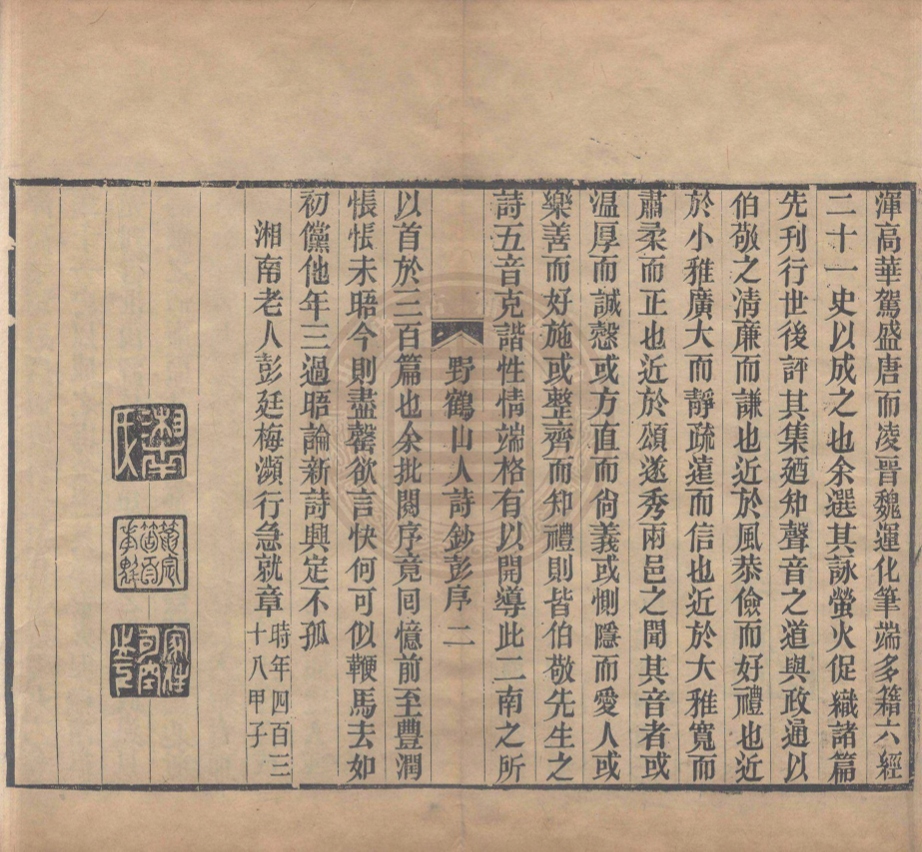 渾高華駕盛唐而凌晉魏運化筆端多籍六經
二十一史以成之也余選其詠螢火促織諸篇
先刋行世後評其集廼知聲音之道與政通以
伯敬之清廉而謙也近於風恭儉而好禮也近
於小雅廣大而靜疏遠而信也近於大雅寬而
肅柔而正也近於頌遂秀兩邑之聞其音者或
温厚而誠慤或方直而尙義或惻隱而愛人或
樂善而好施或整齊而知禮則皆伯敬先生之
詩五音克諧性情端格有以開導此二南之所
野鶴山人詩鈔彭序 二
以首於三百篇也余批閱序竟囘憶前至豐潤
悵悵未晤今則盡罄欲言快何可似鞭馬去如
初儻他年三過晤論新詩興定不孤
湘南老人彭廷梅瀕行急就章時年四百三
十八甲子